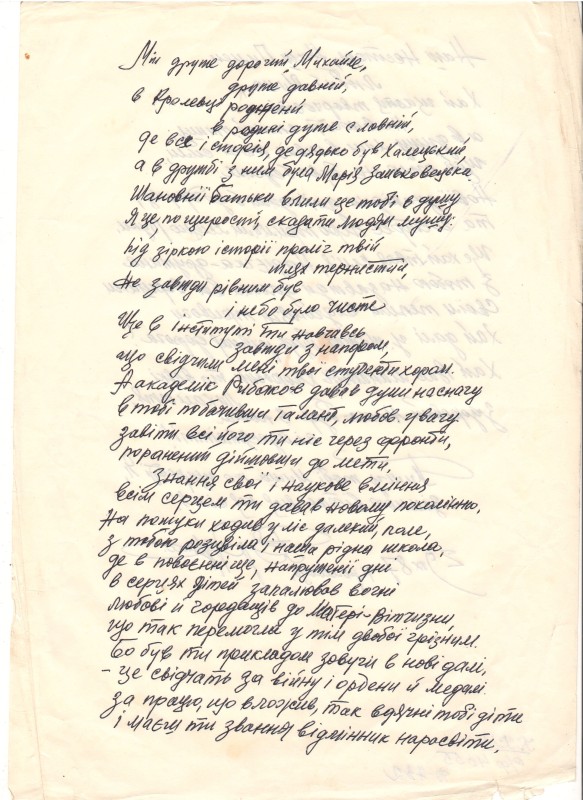 Мій друже дорогий, Михайле,
друже давній,
в Кролевці роджений
в родині дуже славній,
де все історія, де дядько був Халецький
а в дружбі з ним була Марія Заньковецька.
Шановнії батьки влили це тобі в душу
Я це, по щирості, сказати людям мушу:
Під зіркою історії проліг твій
шлях тернистий,
не завжди рівним був
і небо було чисте
Ще в інституті ти навчавсь
завжди з напором,
що свідчили мені твої студенти хором.
А академік Рибаков давав душі наснагу
в тобі побачивши талант, любов. увагу.
завіти всі його ти ніс через фронти,
поранений дійшовши до мети,
Знання свої і наукове вміння
всім серцем ти давав новому поколінню,
На пошуки ходив у ліс далекий, поле,
з тобою розцвіла і наша рідна школа,
де в повоєнні ще, напруженії дні
в серцях дітей запалював вогні
любові й гордощів до Матері-Вітчизни,
що так перемогли у тім двобої грізним.
Бо був ти прикладом зовучи в нові далі,
- це свідчать за війну і ордени й медалі.
за працю, що вложив, так вдячні тобі діти
і маєш ти звання відмінник наросвіти.